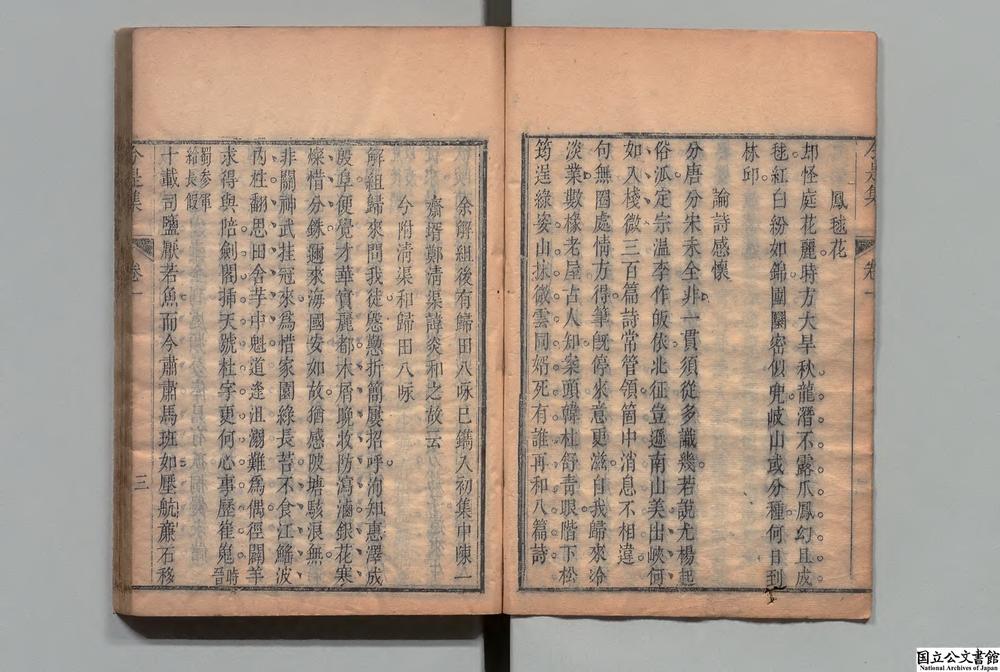 鳳毬花
却怪庭花麗時方大旱秋龍潛不露爪鳳幻且成
毬紅白紛如錦團圞密似兜岐山或分種何日到
林邱
論詩感懷
分唐分宋未全非一貫須從多識幾若說尤楊起
俗派定宗溫李作皈依北征豈遜南山美出峽何
如入棧微三百篇詩常管領箇中消息不相違
句無圈處情方得筆旣停來意更滋自我歸來泠
淡業數椽老屋古人知案頭韓杜舒靑眼階下松
筠逞綠姿山抹微雲同婿死有誰再和八篇詩
余解組後有歸田八咏已鐫入初集中陳一
齋壻鄭淸渠諱炎和之故云
兮附淸渠和歸田八咏
解組歸來問我徒慇懃折簡屢招呼洵知惠澤成
殷阜便覺才華質麗都木屑晚收防瀉滷銀花寒
燦惜分銖邇來海國安如故猶感陂塘駭浪無
非關神武挂冠來爲惜家園綠長苔不食江鰩波
內性翻思田舍芋中魁道逢沮溺難爲偶徑闢羊
求得與陪劍閣揷天號杜宇更何心事歷崔嵬時晉
蜀參軍
給長假
十載司鹽厭若魚而今肅肅馬班如壓航亷石移
今是集
卷一
三
国立公文書館
National Archives of Japan